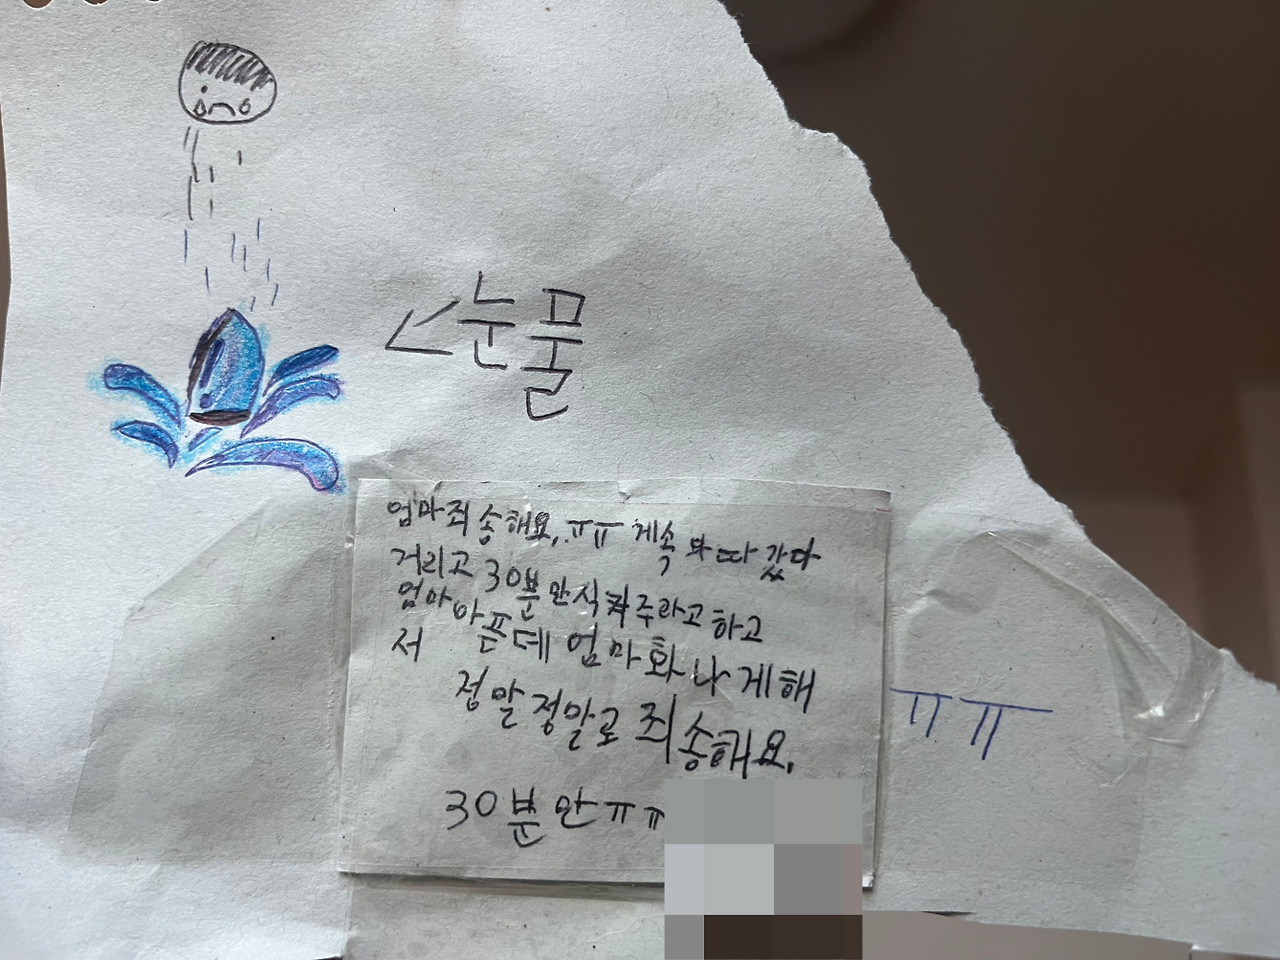 <눈물
엄마죄송해요,ㅠㅠ 계속 와따갔다
거리고 30분만식켜주라고하고
엄마아픈데 엄마화나게해
서
정말정말로 죄송해요.
30분만ㅠㅠ
ㅠㅠ